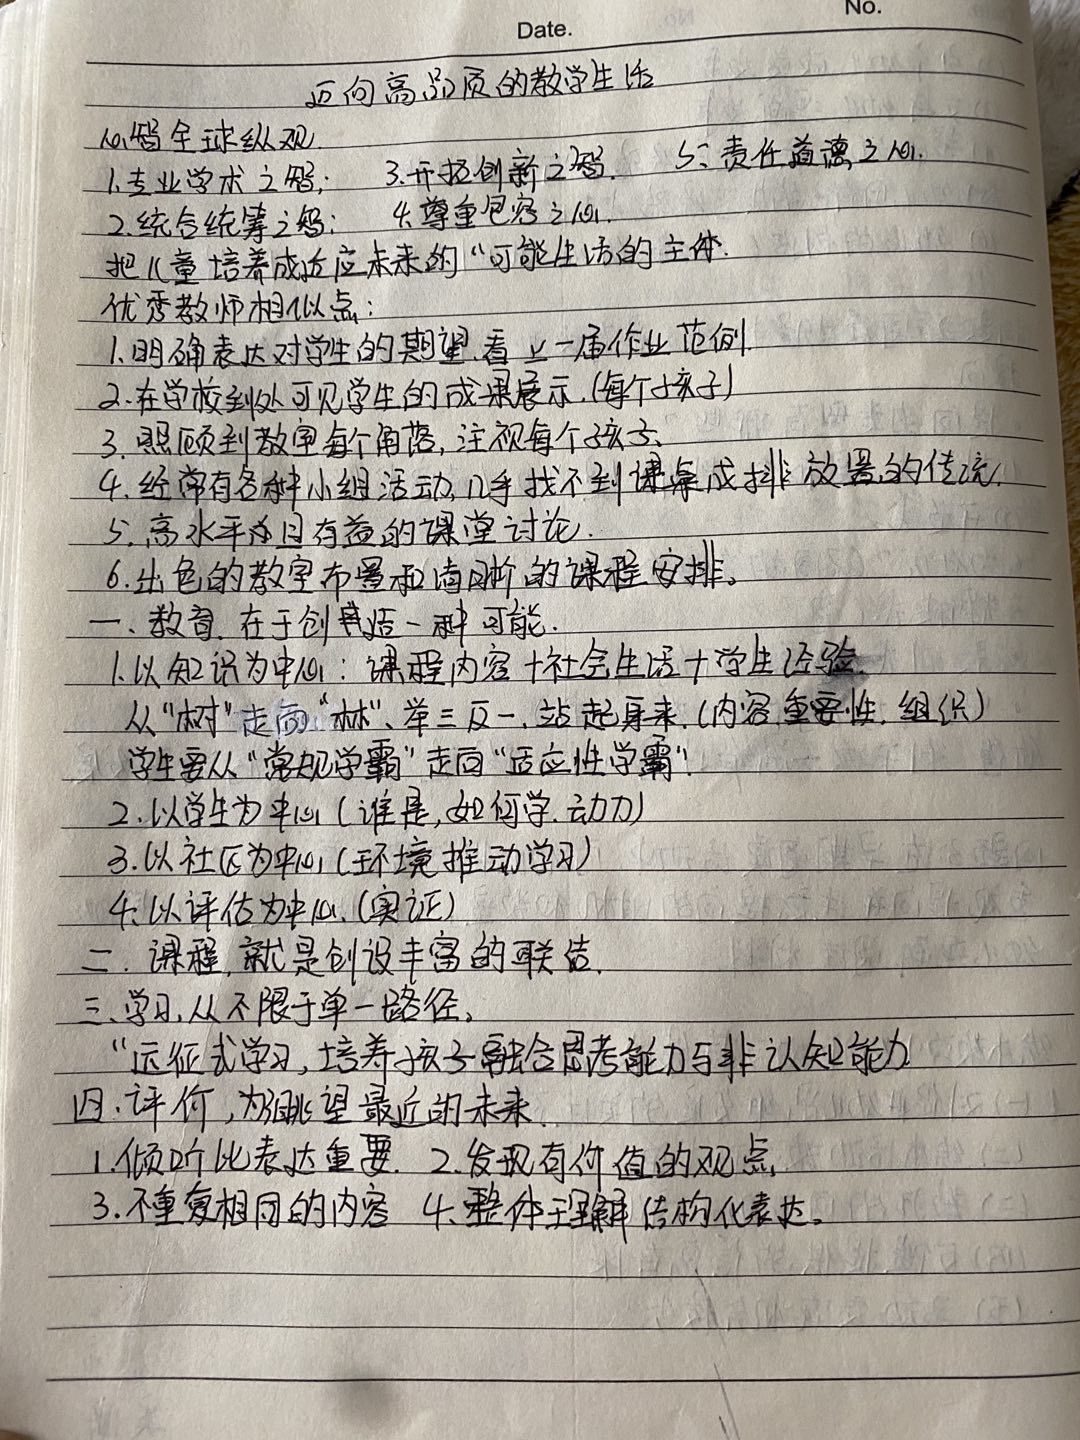 No.
Date.
迈向高品质的教学生活
心智全球纵观
1.专业学术之智; 3.开拓创新之智. 5:责任道德之心.
2.统合统筹之智; 4.尊重包容之心.
把儿童培养成适应未来的“可能生活的主体.
优秀教师相似点:
1.明确表达对学生的期望.看上一届作业范例
2.在学校到处可见学生的成果展示.(每个孩子)
3.照顾到教室每个角落,注视每个孩子、
4.经常有各种小组活动,几乎找不到课桌成排放置的传统.
5.高水平为且有益的课堂讨论.
6.出色的教室布置和清晰的课程安排。
一、教育.在于创造一种可能.
1.以知识为中心:课程内容+社会生活+学生经验.
从“树”走向“林”、举三反一.站起身来.(内容.重要性.组织)
学生要从“常规学霸”走向“适应性学霸”!
2.以学生为中心(谁是,如何学.动力)
3.以社区为中心(环境推动学习)
4.以评估为中心.(实证)
二.课程,就是创设丰富的联结.
三、学习,从不限于单一路径。
“远征式学习,培养孩子融合思考能力与非认知能力
四.评价,为眺望最近的未来.
1.倾听比表达重要. 2.发现有价值的观点
3.不重复相同的内容 4.整体理解结构化表达。